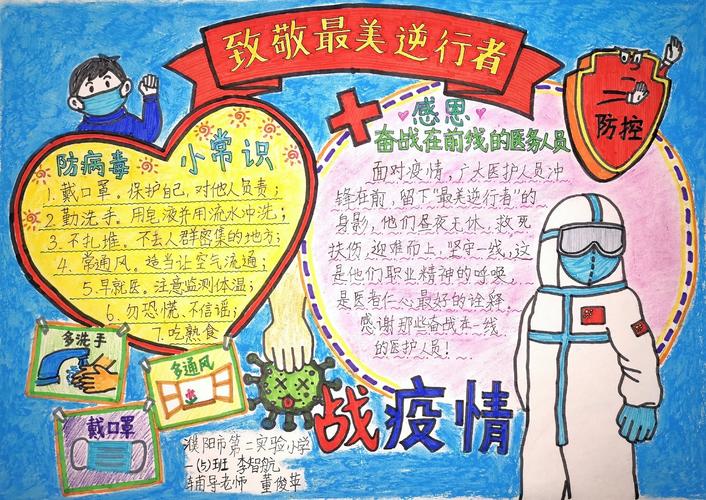 致敬最美逆行者
防病毒 小常识
1. 戴口罩。保护自己，对他人负责；
2. 勤洗手。用皂液并用流水冲洗；
3. 不扎堆。不去人群密集的地方；
4. 常通风。适当让空气流通；
5. 早就医。注意监测体温；
6. 勿恐慌、不信谣；
7. 吃熟食。
感恩
奋战在前线的医务人员
面对疫情，广大医护人员冲
锋在前，留下"最美逆行者"的
身影，他们昼夜无休，救死
扶伤，迎难而上，坚守一线，这
是他们职业精神的呼唤，
是医者仁心最好的诠释。
感谢那些奋战在一线
的医护人员！
防控
多洗手
多通风
戴口罩
战疫情
濮阳市第二实验小学
一(5)班 李智航
辅导老师 董俊萍